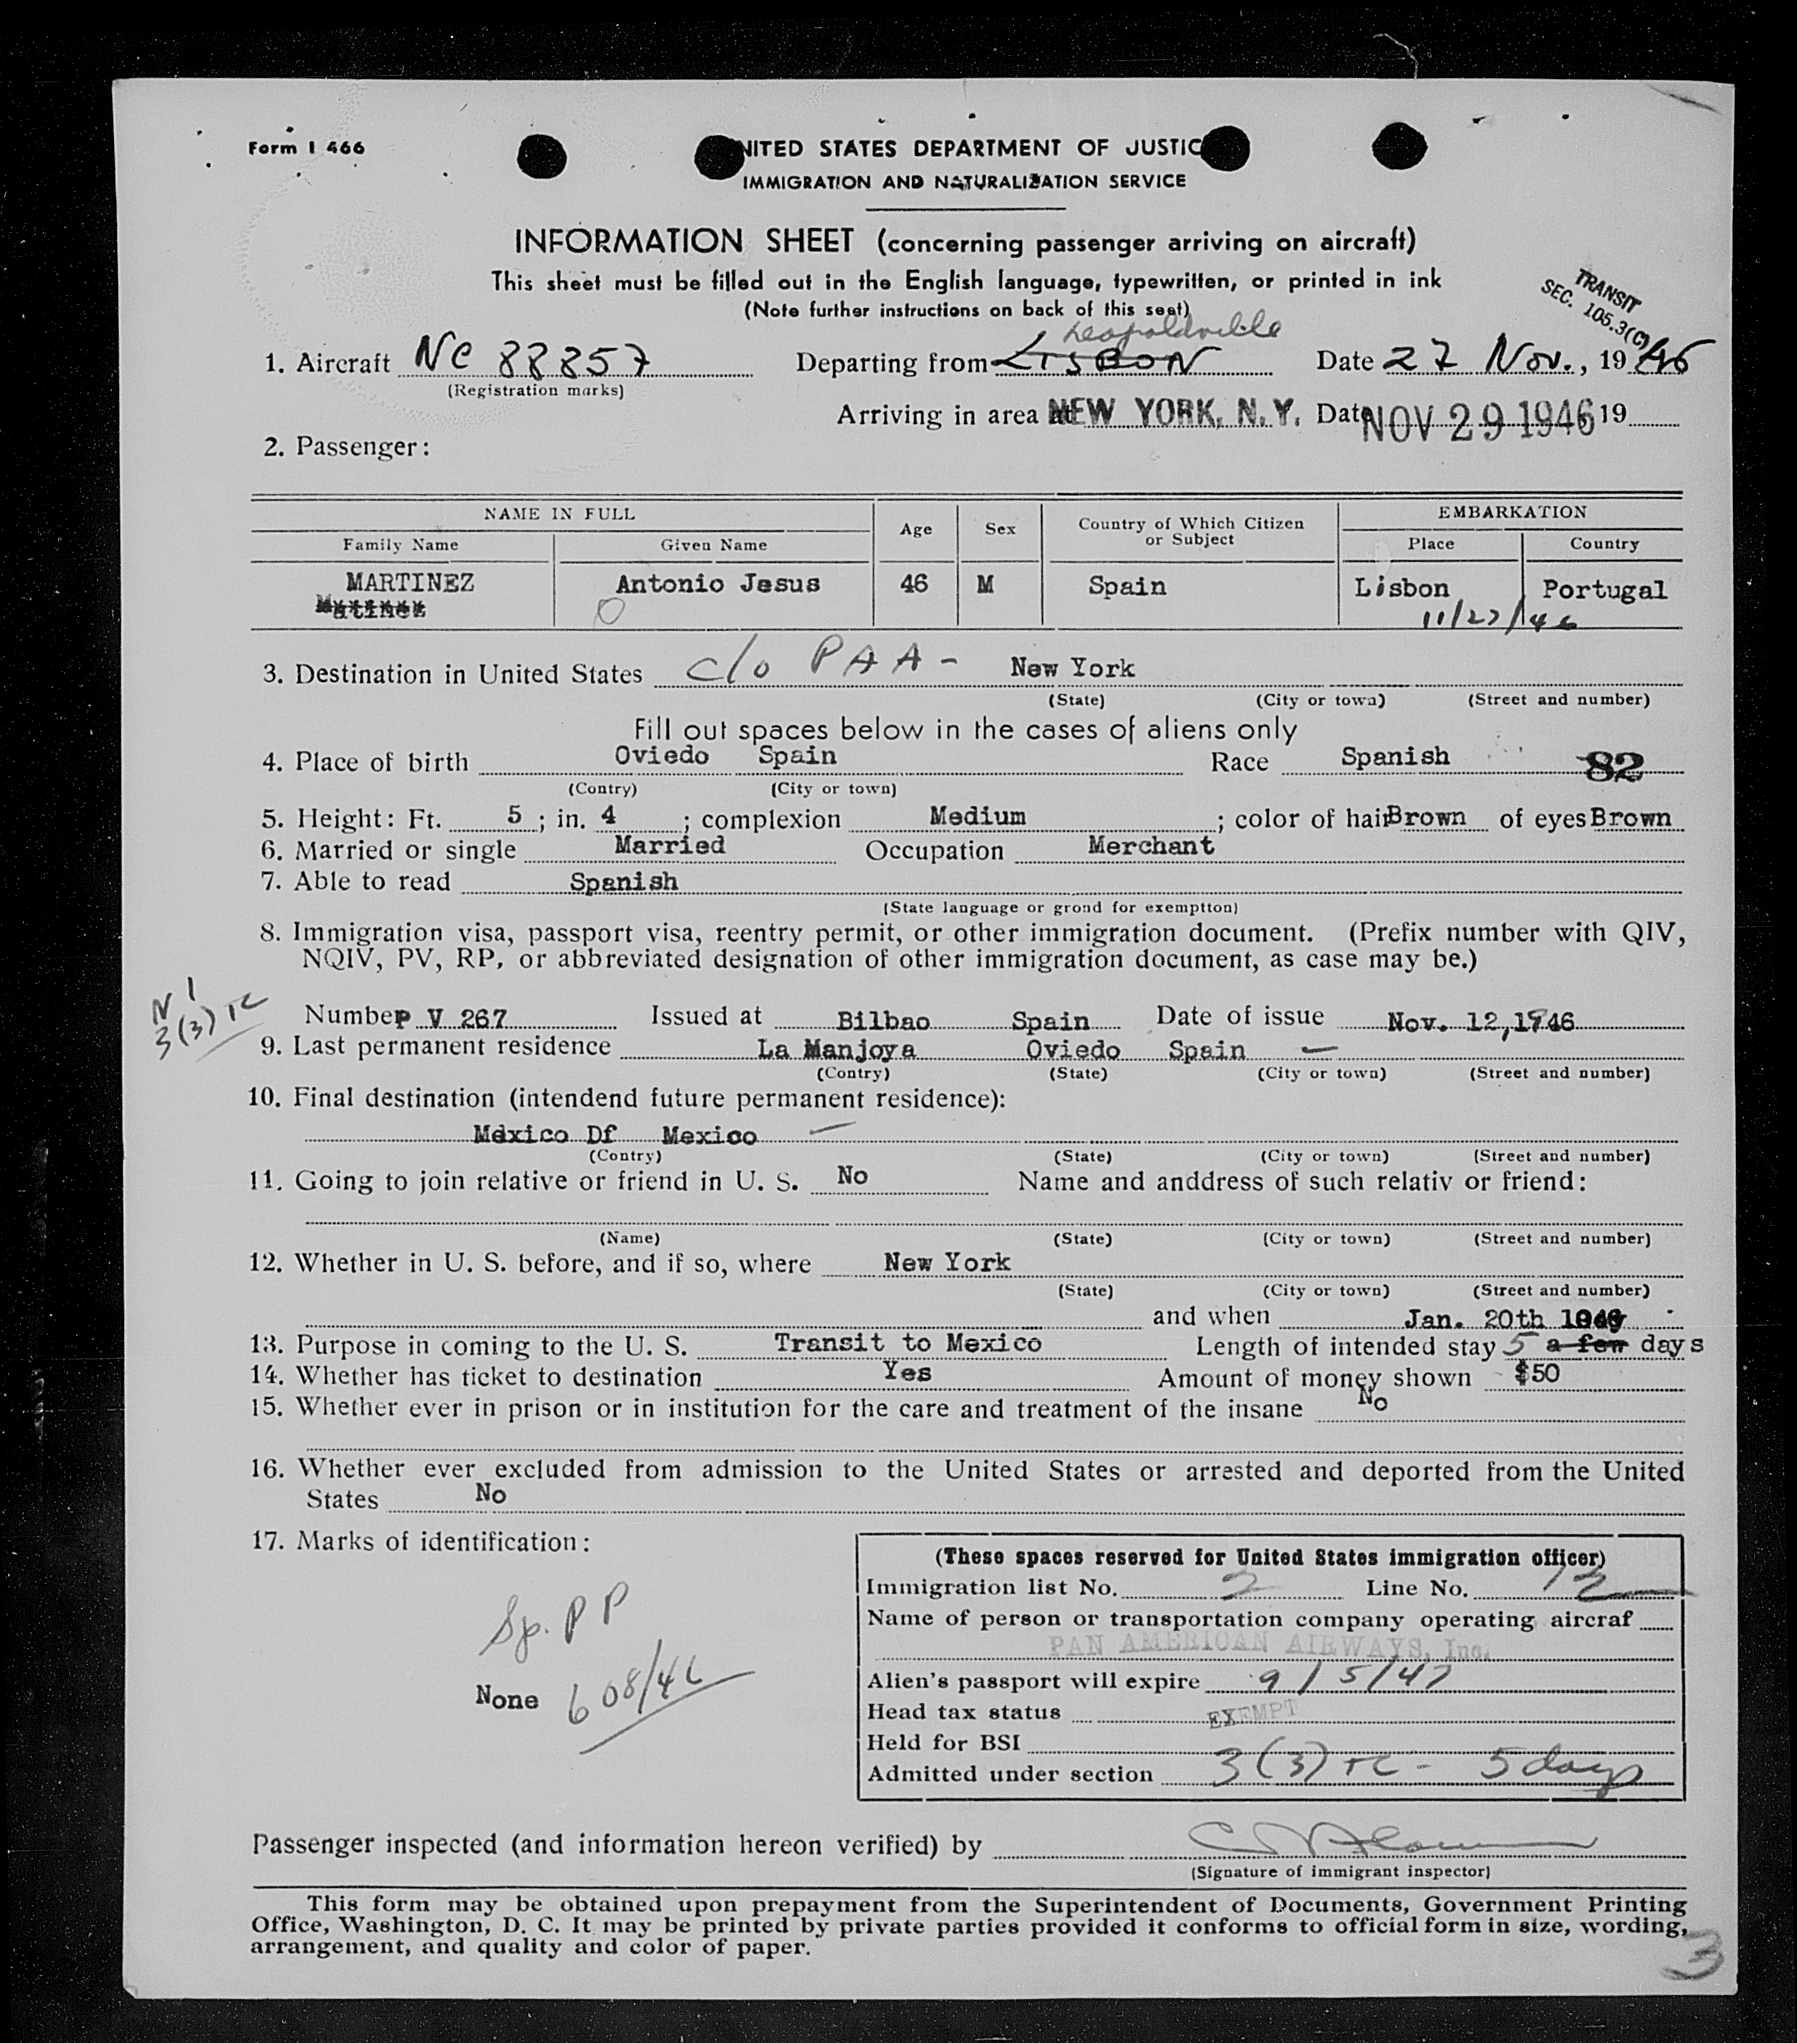 Form I 466
UNITED STATES DEPARTMENT OF JUSTIC
IMMIGRATION AND NATURALIZATION SERVICE
INFORMATION SHEET (concerning passenger arriving on aircraft)
This sheet must be filled out in the English language, typewritten, or printed in ink
(Note further instructions on back of this seet)
TRANSIT
SEC. 105.3(C)
Leopoldville
1. Aircraft NC 88857 Departing from LISBON Date 27 Nov., 19 46
(Registration marks)
Arriving in area at NEW YORK, N.Y. Date NOV 29 1946 19
2. Passenger:
NAME IN FULL Age Sex Country of Which Citizen or Subject EMBARKATION
Family Name Given Name Place Country
MARTINEZ Antonio Jesus 46 M Spain Lisbon Portugal
Matinez 11/27/46
3. Destination in United States c/o PAA - New York
(State) (City or town) (Street and number)
Fill out spaces below in the cases of aliens only
4. Place of birth Oviedo Spain Race Spanish 82
(Contry) (City or town)
5. Height: Ft. 5 ; in. 4 ; complexion Medium ; color of hair Brown of eyes Brown
6. Married or single Married Occupation Merchant
7. Able to read Spanish
(State language or grond for exemptton)
8. Immigration visa, passport visa, reentry permit, or other immigration document. (Prefix number with QIV,
NQIV, PV, RP, or abbreviated designation of other immigration document, as case may be.)
N 1
3(3) TC
Number P V 267 Issued at Bilbao Spain Date of issue Nov. 12,1946
9. Last permanent residence La Manjoya Oviedo Spain —
(Contry) (State) (City or town) (Street and number)
10. Final destination (intendend future permanent residence):
Mexico Df Mexico —
(Contry) (State) (City or town) (Street and number)
11. Going to join relative or friend in U. S. No Name and anddress of such relativ or friend:
(Name) (State) (City or town) (Street and number)
12. Whether in U. S. before, and if so, where New York
(State) (City or town) (Street and number)
and when Jan. 20th
13. Purpose in coming to the U. S. Transit to Mexico Length of intended stay 5 a few days
14. Whether has ticket to destination Yes Amount of money shown $50
15. Whether ever in prison or in institution for the care and treatment of the insane No
16. Whether ever excluded from admission to the United States or arrested and deported from the United
States No
17. Marks of identification:
Sp. PP
None 608/46
(These spaces reserved for United States immigration officer)
Immigration list No. 2 Line No. 12
Name of person or transportation company operating aircraf
PAN AMERICAN AIRWAYS, Inc.
Alien's passport will expire 9/5/47
Head tax status EXEMPT
Held for BSI
Admitted under section 3(3) TC - 5 days
Passenger inspected (and information hereon verified) by
(Signature of immigrant inspector)
This form may be obtained upon prepayment from the Superintendent of Documents, Government Printing
Office, Washington, D. C. It may be printed by private parties provided it conforms to official form in size, wording,
arrangement, and quality and color of paper.
3